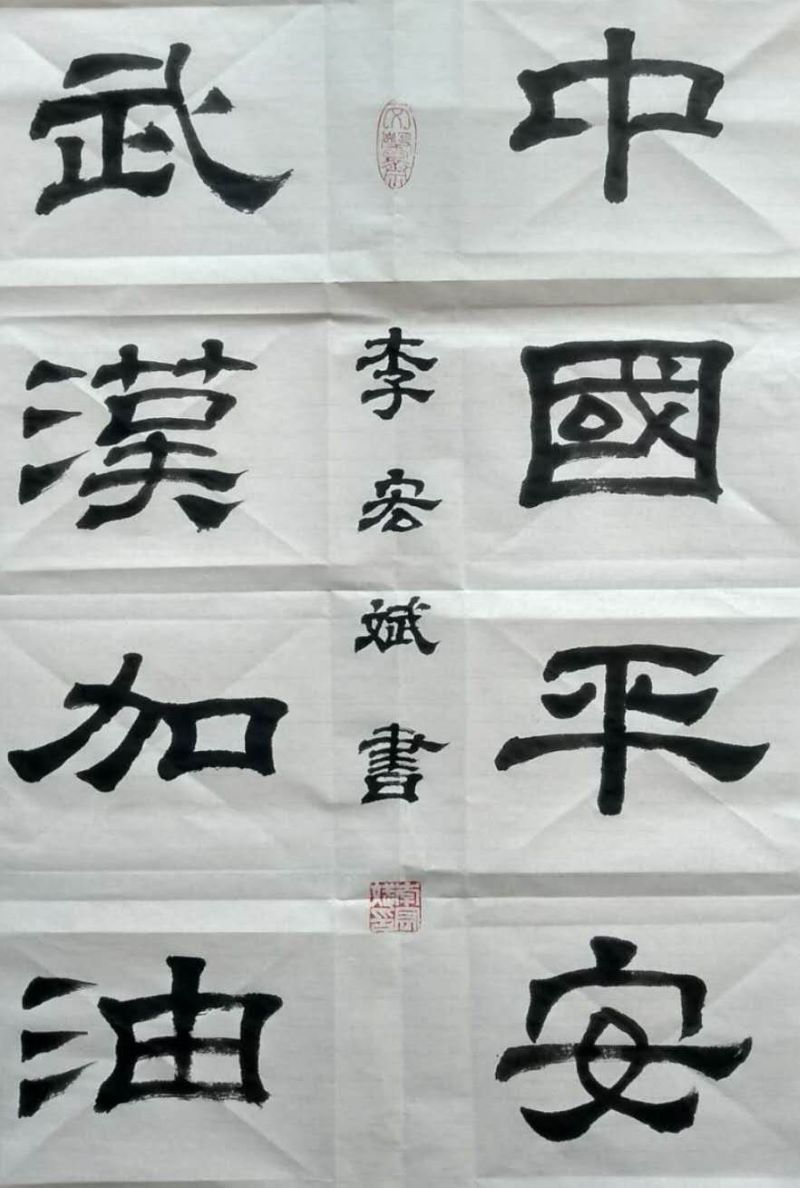 中國平安
武漢加油
李宏斌書